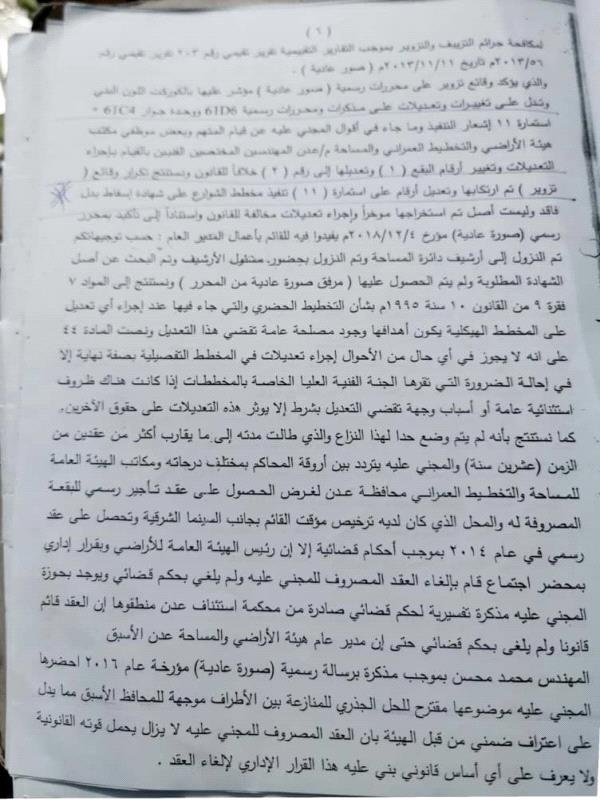 ( ٦ )
لمكافحة جرائم التزييف والتزوير بموجب التقارير التقييمية تقرير تقيمي رقم ٢٠٣ تقرير تقيمي رقم
٢٠١٣/٥٦م تاريخ ٢٠١٣/١١/١١م ( صور عادية ) .
والذي يؤكد وقائع تزوير على محررات رسمية ( صور عادية ) مؤشر عليها بالكوركت اللون الفضي
وتدل على تغييرات وتعديلات على مذكرات ومحررات رسمية 61D6 ووحدة جوار 61C4 "
استمارة ١١ إشعار التنفيذ وما جاء في أقوال المجني عليه عن قيام المتهم وبعض موظفي مكتب
هيئة الأراضي والتخطيط العمراني والمساحة م/عدن المهندسين المختصين الفنيين بالقيام بإجراء
التعديلات وتغيير أرقام البقع ( ١ ) وتعديلها إلى رقم ( ٢ ) خلافاً للقانون ونستنتج تكرار وقائع (
تزوير ) تم ارتكابها وتعديل أرقام على استمارة ( ١١ ) تنفيذ مخطط الشوارع على شهادة إسقاط بدل
فاقد وليست أصل تم استخراجها موخراً وإجراء تعديلات مخالفة للقانون واستناداً إلى تأكيد بمحرر
رسمي (صورة عادية) مؤرخ ٢٠١٨/١٢/٤م بفيدوا فيه للقائم بأعمال المدير العام : حسب توجيهاتكم
تم النزول إلى أرشيف دائرة المساحة وتم النزول بحضور مسئول الأرشيف وتم البحث عن أصل
الشهادة المطلوبة ولم يتم الحصول عليها ( مرفق صورة عادية من المحرر ) ونستنتج إلى المواد ٧
فقرة ٩ من القانون ١٠ سنة ١٩٩٥م بشأن التخطيط الحضري والتي جاء فيها عند إجراء أي تعديل
على المخطط الهيكلية يكون أهدافها وجود مصلحة عامة تقضي هذا التعديل ونصت المادة ٤٤
على انه لا يجوز في أي حال من الأحوال إجراء تعديلات في المخطط التفصيلية بصفة نهاية إلا
في إحالة الضرورة التي تقرها الجنة الفنية العليا الخاصة بالمخططات إذا كانت هناك ظروف
استثنائية عامة أو أسباب وجهة تقضي التعديل بشرط إلا يوثر هذه التعديلات على حقوق الآخرين.
كما نستنتج بأنه لم يتم وضع حدا لهذا النزاع والذي طالت مدته إلى ما يقارب أكثر من عقدين من
الزمن (عشرين سنة) والمجني عليه يتردد بين أروقة المحاكم بمختلف درجاته ومكاتب الهيئة العامة
للمساحة والتخطيط العمراني محافظة عدن لغرض الحصول على عقد تأجير رسمي للبقعة
المصروفة له والمحل الذي كان لديه ترخيص مؤقت القائم بجانب السينما الشرقية وتحصل على عقد
رسمي في عام ٢٠١٤ بموجب أحكام قضائية إلا إن رئيس الهيئة العامة للأراضي وبقرار إداري
بمحضر اجتماع قام بإلغاء العقد المصروف للمجني عليه ولم يلغي بحكم قضائي ويوجد بحوزة
المجني عليه مذكرة تفسيرية لحكم قضائي صادرة من محكمة استئناف عدن منطقوها إن العقد قائم
قانونا ولم يلغى بحكم قضائي حتى إن مدير عام هيئة الأراضي والمساحة عدن الأسبق
المهندس محمد محسن بموجب مذكرة برسالة رسمية (صورة عادية) مؤرخة عام ٢٠١٦ احضرها
المجني عليه موضوعها مقترح للحل الجذري للمنازعة بين الأطراف موجهة للمحافظ الأسبق مما يدل
على اعتراف ضمني من قبل الهيئة بان العقد المصروف للمجني عليه لا يزال يحمل قوته القانونية
ولا يعرف على أي أساس قانوني بني عليه هذا القرار الإداري لإلغاء العقد .